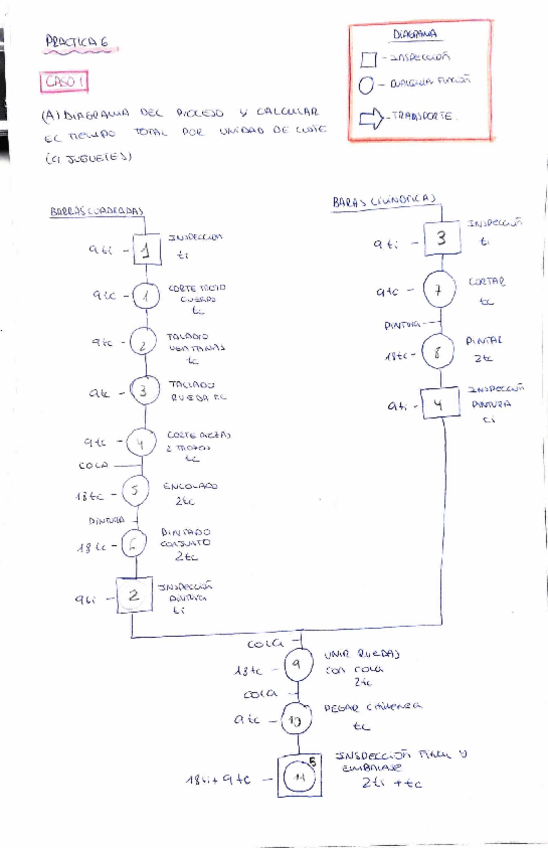 PRACTICA 6
CASO 1
(A) DIAGRAMA DEL PROCESO Y CALCULAR
EL TIEMPO TOTAL POR UNIDAD DE LOTE
(9 JUGUETES)
DIAGRAMA
- INSPECCIÓN
- CUALQUIER FUNCIÓN
- TRANSPORTE.
BARRAS CUADRADAS
9ti - 1 INSPECCIÓN
ti
9tc - 1 CORTE TROZO
CUERPO
tc
9tc - 2 TALADRO
VENTANAS
tc
9tc - 3 TALLADO
RUEDA tc
9tc - 4 CORTE PIEZAS
2 TROZOS
tc
COLA
18tc - 5 ENCOLADO
2tc
PINTURA
18tc - 6 PINTADO
CONJUNTO
2tc
9ti - 2 INSPECCIÓN
PINTURA
ti
BARAS CILÍNDRICAS
9ti - 3 INSPECCIÓN
ti
9tc - 7 CORTAR
tc
PINTURA
18tc - 8 PINTAR
2tc
9ti - 4 INSPECCIÓN
PINTURA
ti
COLA
18tc - 9 UNIR RUEDAS
CON COLA
2tc
COLA
9tc - 10 PEGAR CHIMENEA
tc
18ti + 9tc - 5 11 INSPECCIÓN FINAL Y
EMBALAJE
2ti + tc